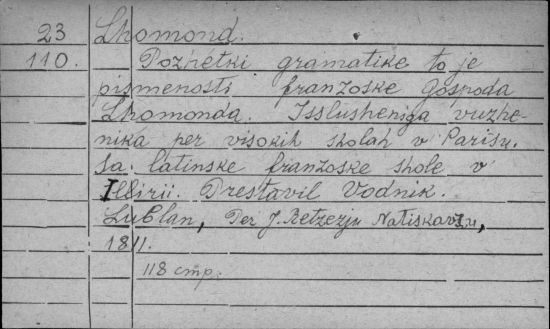 23 Lhomond.
110. Pozhetki gramatike to je
pismenosti franzoske Gospoda
Lhomonda. Isslusheniga vuzhe-
nika per visokih sholah v Parisu.
Sa latinske franzoske shole v
Illirii. Prestavil Vodnik.
Lublan, Per J. Retzerju Natiskavzu,
1811.
118 cmp.